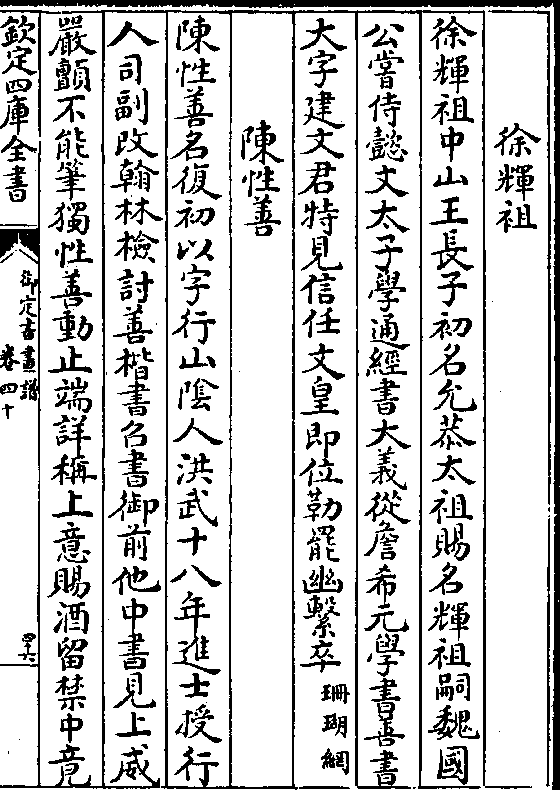 徐輝祖
徐輝祖中山王長子初名允恭太祖賜名輝祖嗣魏國
公嘗侍懿文太子學通經書大義從詹希元學書善書
大字建文君特見信任文皇即位勒罷幽繫卒珊瑚網
陳性善
陳性善名復初以字行山陰人洪武十八年進士授行
人司副改翰林檢討善楷書名書御前他中書見上威
嚴顫不能筆獨性善動止端詳稱上意賜酒留禁中竟
欽定四庫全書
御定書畫譜
卷四十